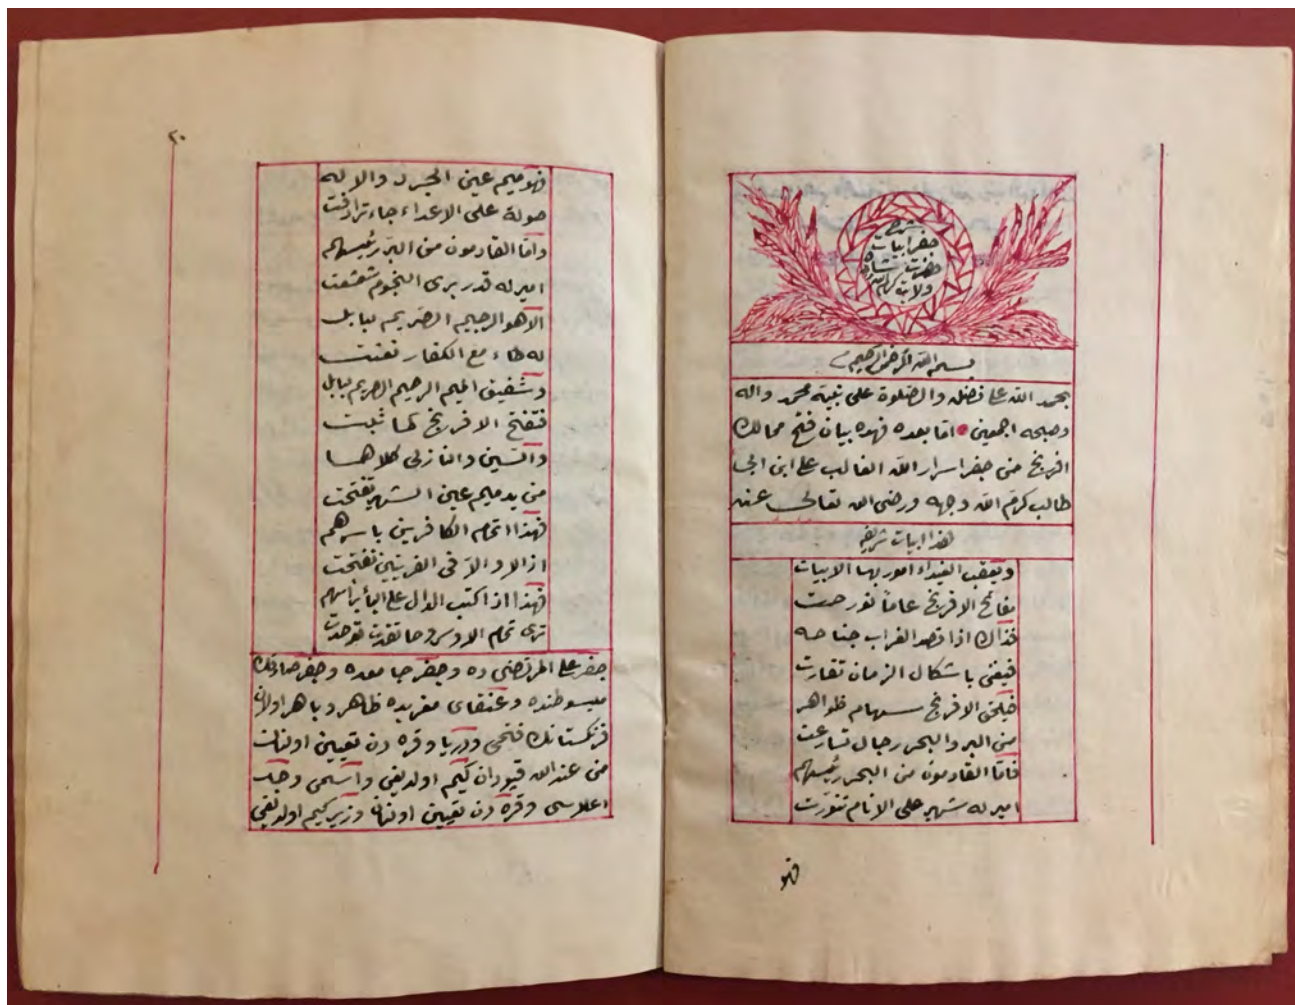 شرح
جفر ابيات
حضرت شاه
ولايت كرم الله
بسم الله الرحمن الرحيم
بحمد الله على فضله والصلوة على نبيه محمد واله
وصحبه اجمعين اما بعده فهذه بيان فتح ممالك
افرنج من جفر اسرار الله الغالب على ابن ابى
طالب كرم الله وجهه ورضى الله تعالى عنه
هذا ابيات شريفه
ويعقب امور بها الابيات
مفاتح الافرنج عاماً تورخت
فذاك اذا قصد الغراب جناحه
فيفنى باشكال الزمان تقارت
فيلحق الافرنج سهام ظواهر
من البر والبحر رجال تسارعت
فاما القادمون من البحر رئيسهم
امير له شهر على الانام تنورت
فهو
٢٠
فهو ميم عين والا له
صولة على الاعداء جاء ترادفت
واما القادمون من البر رئيسهم
امير له قدر يرى النجوم تشعشعت
الا هو الرحيم الصريم ببابل
له طاء مع الكفار تفنت
وشفيق الميم الرحيم الصريم ببابل
فتفتح الافرنج لما ثبت
والسين والنازلى كلاهما
من يد ميم عين الشهير تفتحت
فهذا اتمام الكافرين باسرهم
اذ الا والا فى القريتين تفتحت
فهذا اذا كتب الدال على اليا براسهم
ترى تمام الاروس توحدت
جفر على المرتضى ده وجفر جامعده وجفر صادقك
مبسوطنده وعنقاى مغربده ظاهر وباهر اولان
فرنكستانك فتحى ودريا وقره دن تعيين اولنان
من عند الله قپودان كيم اولديغى واسمى وجد
اعلاسى وقره دن تعيين اولنان وزير كيم اولديغى